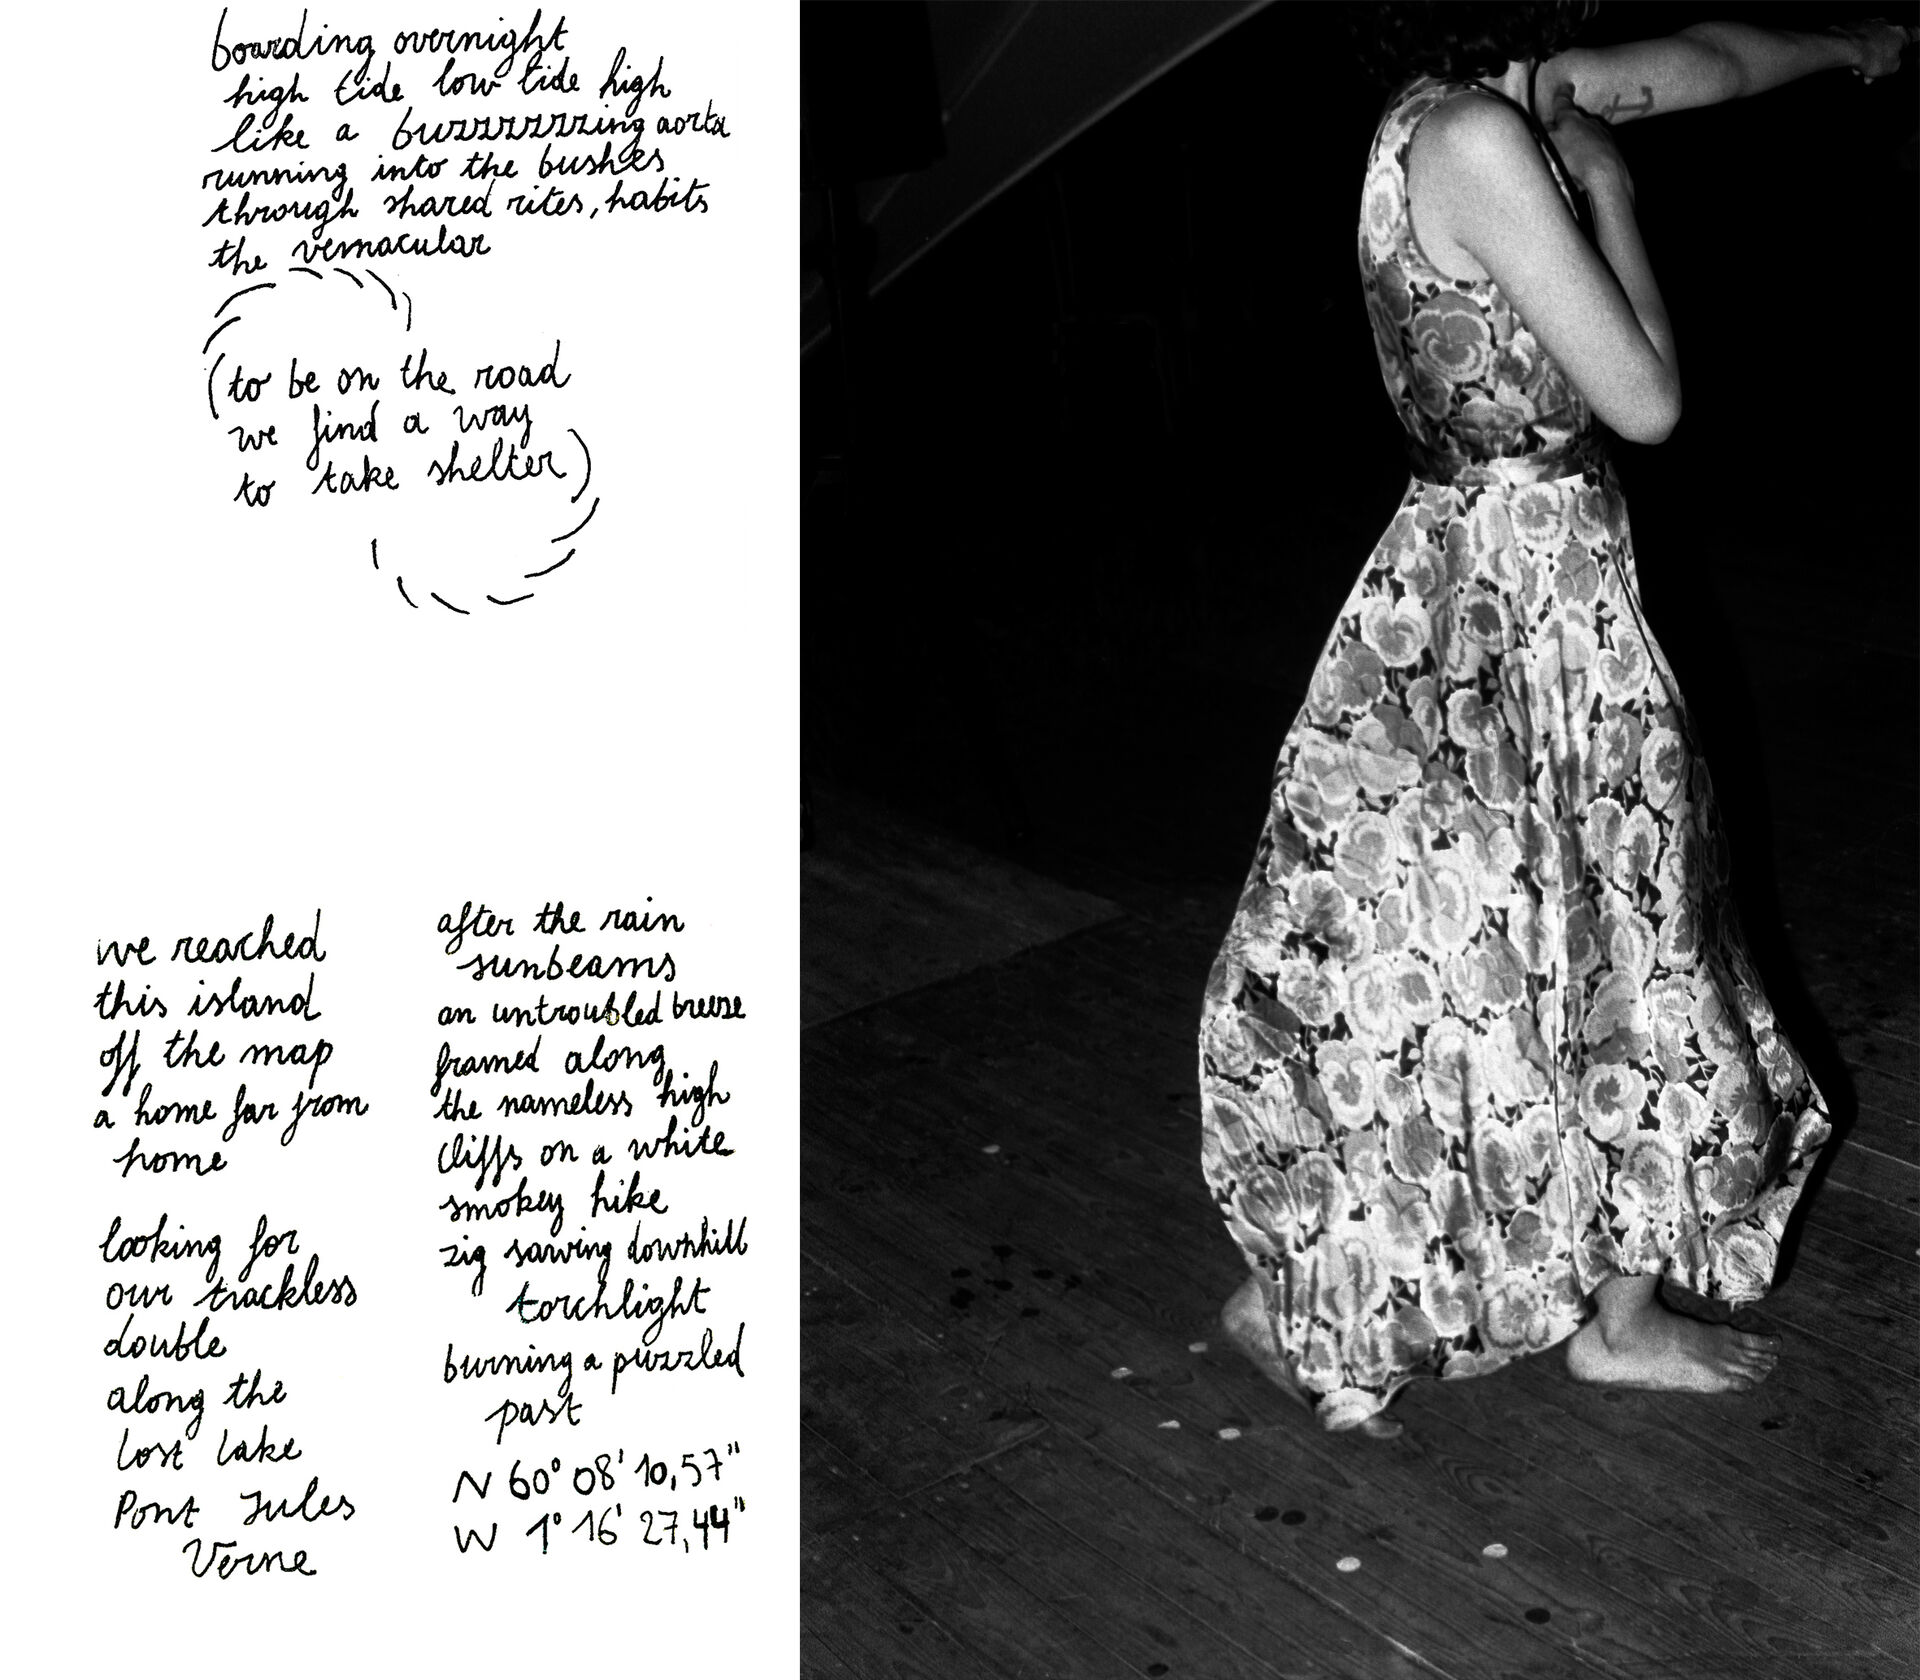 boarding overnight
high tide low tide high
like a buzzzzzzing aorta
running into the bushes
through shared rites, habits
the vernacular
(to be on the road
we find a way
to take shelter)
we reached
this island
off the map
a home far from
home
looking for
our trackless
double
along the
lost lake
Pont Jules
Verne
after the rain
sunbeams
an untroubled breeze
framed along
the nameless high
cliffs on a white
smokey hike
zig sawing downhill
torchlight
burning a puzzled
past
N 60° 08' 10,57"
W 1° 16' 27,44"